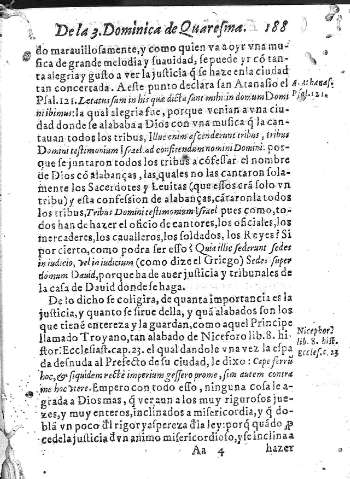 De la 3. Dominica de Quaresma. 188
do marauillosamente, y como quien va a oyr vna mu-
sica de grande melodia y suauidad, se puede yr cō tan-
ta alegria y gusto a ver la justicia q̃ se haze en la ciudad
tan concertada. A este punto declara san Atanasio el
Psal. 121. Letatus sum in his quæ dicta sunt mihi: in domum Domi
ni ibimus: la qual alegria fue, porque venian a vna ciu-
dad donde se alababa a Dios con vna musica q̃ la can-
tauan todos los tribus, Illuc enim ascenderunt tribus, tribus
Domini testimonium Israel. ad confitendum nomini Domini. por-
que se juntaron todos los tribus a cōfessar el nombre
de Dios cō alabanças, las quales no las cantaron sola-
mente los Sacerdotes y Leuitas (que essos erā solo vn
tribu) y esta confession de alabanças, cātaronla todos
los tribus, Tribus Domini testimonium Israel pues como, to-
dos han de hazer el oficio de cantores, los oficiales, los
mercaderes, los caualleros, los soldados, los Reyes? Si
por cierto, como podra ser esso? Quia illic sederunt sedes
in iudicio, vel in iudicium (como dize el Griego) Sedes super
domum Dauid, porque ha de auer justicia y tribunales de
la casa de Dauid donde se haga.
De lo dicho se coligira, de quanta importancia es la
justicia, y quanto se sirue della, y quā alabados son los
que tienē entereza y la guardan, como aquel Principe
llamado Troyano, tan alabado de Niceforo lib. 8. hi-
stor: Ecclesiast. cap. 23. el qual dandole vna vez la espa
da desnuda al Prefecto de su ciudad, le dixo: Cape ferrū
hoc, & siquidem recte imperium gessero pro me, sin autem contra
me hoc vtere. Empero con todo esso, ninguna cosa le a-
grada a Dios mas, q̃ ver aun a los muy rigurosos jue-
zes, y muy enteros, inclinados a misericordia, y q̃ do-
blā vn poco del rigor y aspereza de la ley: porq̃ quādo
cede la justicia d̃ vn animo misericordioso, y se inclina a
Aa 4 hazer
A. Athanas.
Psal. 121.
Nicephor?
lib. 8. hist.
Eccles. c. 23